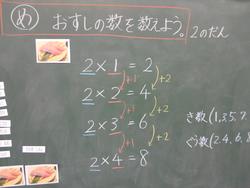 め おすしの数を数えよう。 2のだん
2×1=2
+1 +2
2×2=4
+1 +2
2×3=6
+1 +2
2×4=8
き数(1,3,5,7
ぐう数(2,4,6,8